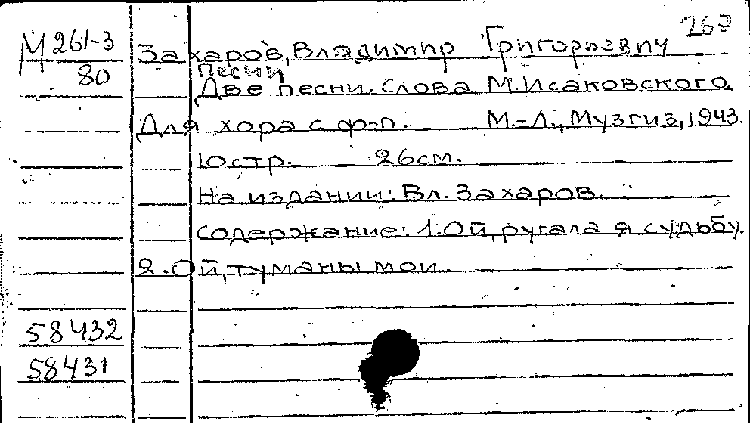 М 261-3
80
Захаров, Владимир Григорьевич
Песни
Две песни. Слова М. Исаковского.
Для хора с ф-п. М.-Л., Музгиз, 1943.
10стр. 26см.
На издании: Вл. Захаров.
Содержание: 1. Ой, ругала я судьбу.
2. Ой, туманы мои.
58432
58431